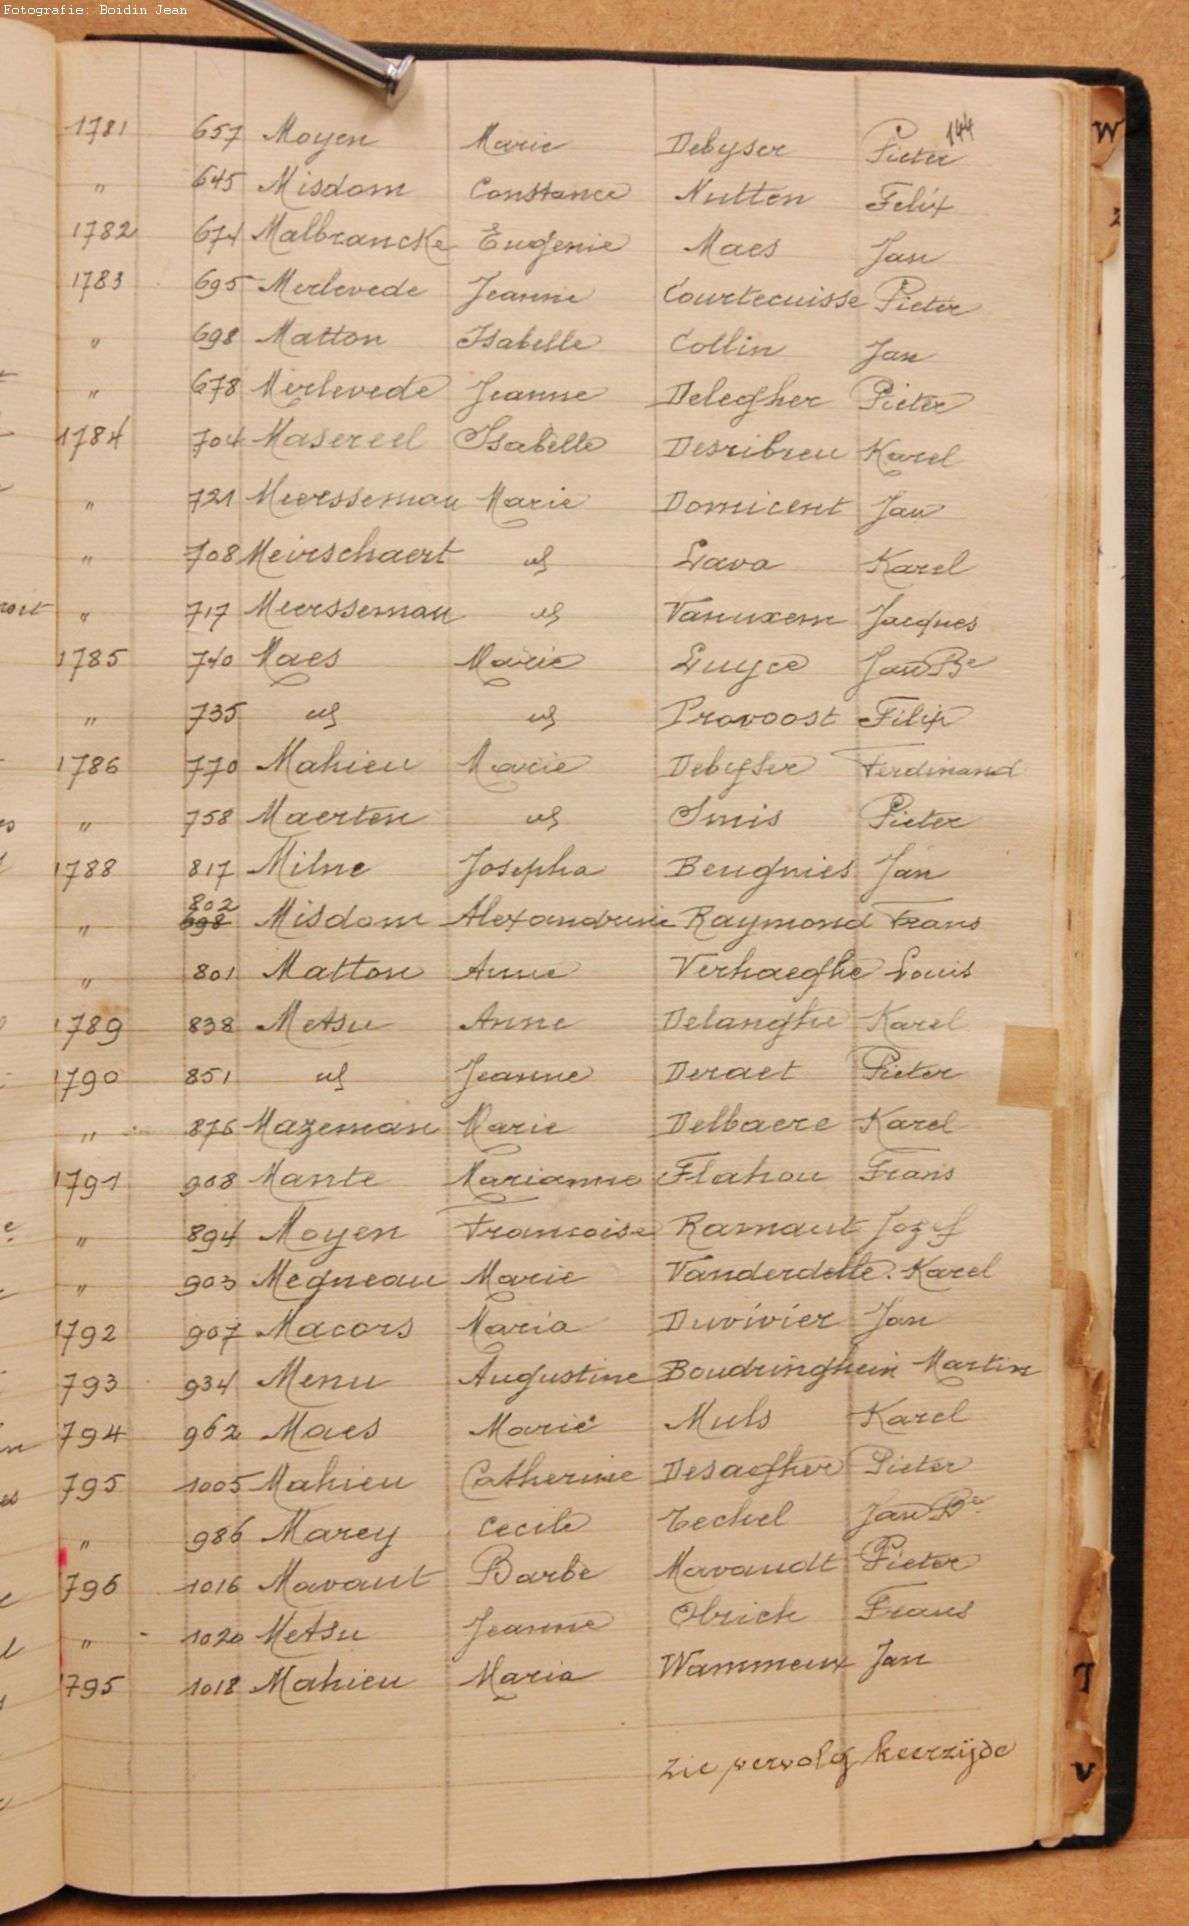 Fotografie: Boidin Jean
144
1781 657 Moyen Marie Debyser Pieter
" 645 Misdom Constance Nutten Felix
1782 674 Malbrancke Eugenie Maes Jan
1783 695 Merlevede Jeanne Courtecuisse Pieter
" 698 Matton Isabelle Collin Jan
" 678 Merlevede Jeanne Delegher Pieter
1784 704 Masereel Isabelle Desribreu Karel
" 721 Meersseman Marie Domicent Jan
" 708 Meirschaert id Lava Karel
" 717 Meersseman id Vanuxem Jacques
1785 740 Maes Marie Luyce Jan Bte
" 735 id id Provoost Felix
1786 770 Mahieu Marie Debyser Ferdinand
" 758 Maerten id Smis Pieter
1788 817 Milne Josepha Beugnies Jan
" 802 698 Misdom Alexandrine Raymond Frans
" 801 Matton Anne Verhaeghe Louis
1789 838 Metsu Anne Delanghe Karel
1790 851 id Jeanne Deraet Pieter
" 876 Mazeman Marie Delbaere Karel
1791 908 Mante Marianne Flahou Frans
" 894 Moyen Francoise Ramaut Jozef
" 903 Megneau Marie Vanderdelle. Karel
1792 907 Macors Maria Duvivier Jan
793 934 Menu Augustine Boudringhein Martin
794 962 Maes Marie Muls Karel
795 1005 Mahieu Catherine Desagher Pieter
" 986 Marey Cecile Techel Jan Bte
796 1016 Mavaut Barbe Mavaudt Pieter
" 1020 Metsu Jeanne Olrich Frans
1795 1018 Mahieu Maria Wammeux Jan
zie vervolg keerzijde
W
Z
T
V